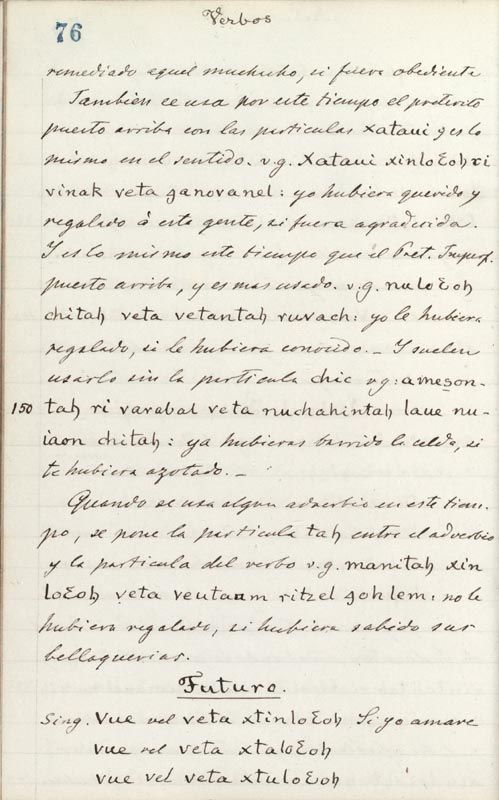 Verbos
76
remediado aquel muchacho, si fuera obediente
Tambien se usa por este tiempo el preterito
puesto arriba con las particulas xatavi y es lo
mismo en el sentido. v.g. xatavi xinloƐoh ri
vinak veta ganovanel: yo hubiera querido y
regalado á esta gente, si fuera agradecida.
Y es lo mismo este tiempo que el Pret. Imperf.
puesto arriba, y es mas usado. v.g. nuloƐoh
chitah veta vetantah ruvach: yo le hubiera
regalado, si le hubiera conocido. _ Y suelen
usarlo sin la particula chic vg: ameson-
150 tah ri varabal veta nuchahintah laue nu-
iaon chitah: ya hubieras barrido la celda, si
te hubiera azotado. _
Quando se usa algun adverbio en este tiem-
po, se pone la particula tah entre el adverbio
y la particula del verbo v.g. manitah xin
loƐoh veta veutaam ritzel gohlem: no le
hubiera regalado, si hubiera sabido sus
bellaquerias.
Futuro.
Sing. vue vel veta xtinloƐoh Si yo amare
vue vel veta xtaloƐoh
vue vel veta xtuloƐoh